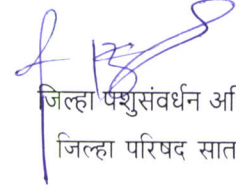 जिल्हा पशुसंवर्धन अ
जिल्हा परिषद सात